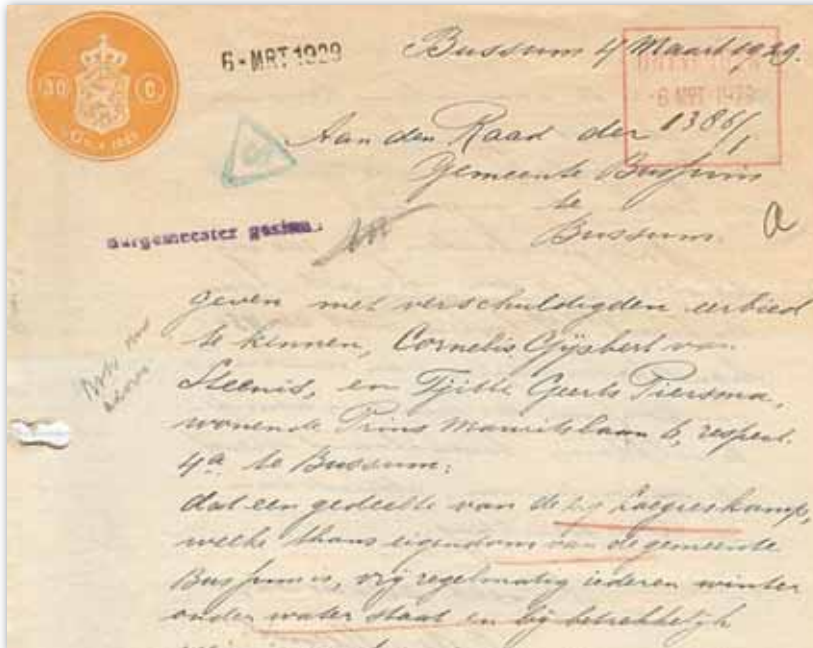 30 C.
6-MRT 1929
Bussum 4 Maart 1929.
6 MRT 1929
Aan den Raad der 1386/1
Gemeente Bussum
te
Bussum.
a
Burgemeester gezien.
geven met verschuldigden eerbied
te kennen, Cornelis Gijsbert van
Steenis, en Tjitte Geerts Piersma,
wonende Prins Mauritslaan 6, respect.
4a te Bussum:
dat een gedeelte van de Laegieskamp,
welke thans eigendom van de gemeente
Bussum is, vrij regelmatig iederen winter
onder water staat en bij betrekkelijk